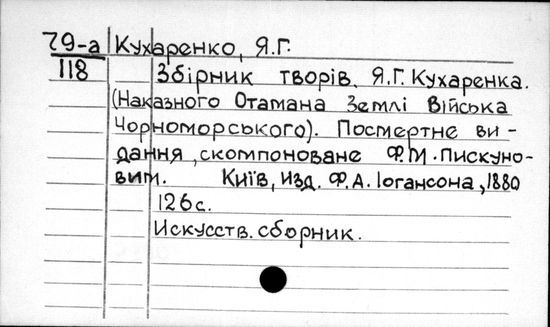 79-а Кухаренко, Я.Г.
118 Збірник творів Я.Г. Кухаренка.
(Наказного Отамана Землі Війська
Чорноморського). Посмертне ви-
дання, скомпоноване Ф.М. Пискуно-
вим. Київ, изд. Ф.А. Іогансона, 1880
126 с.
Искусств. сборник.